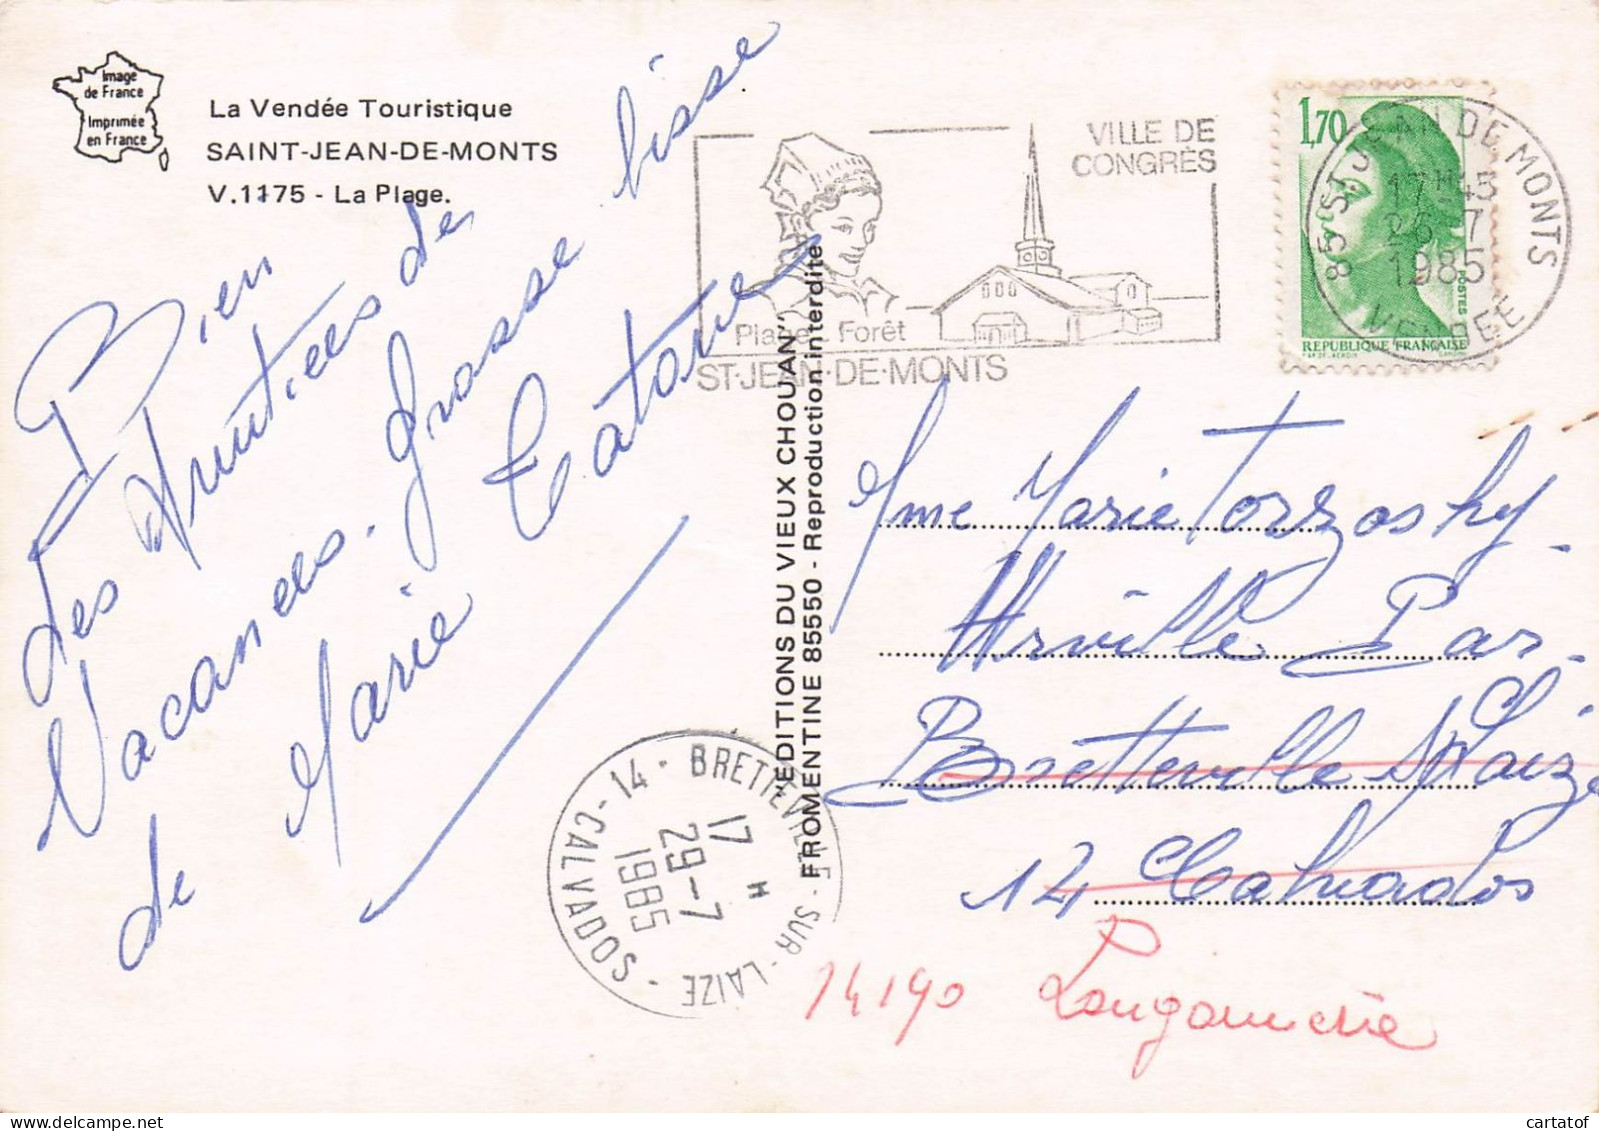 Image
de France
Imprimée
en France
La Vendée Touristique
SAINT-JEAN-DE-MONTS
V.1175 - La Plage.
Bien
des
Vacances. Grosse bisse
de Marie Catave
VILLE DE
CONGRÈS
Plage Forêt
ST-JEAN-DE-MONTS
1,70
POSTES
REPUBLIQUE FRANÇAISE
85 ST JEAN DE MONTS
17H45
26-7
1985
VENDEE
"EDITIONS DU VIEUX CHOUAN"
FROMENTINE 85550 - Reproduction interdite
Mme Marie Torzoshy
Urville Par
Bretteville S/Laize
14 Calvados
14190
14 - BRETTEVILLE - SUR - LAIZE - CALVADOS
17 H
29-7
1985
cartatof